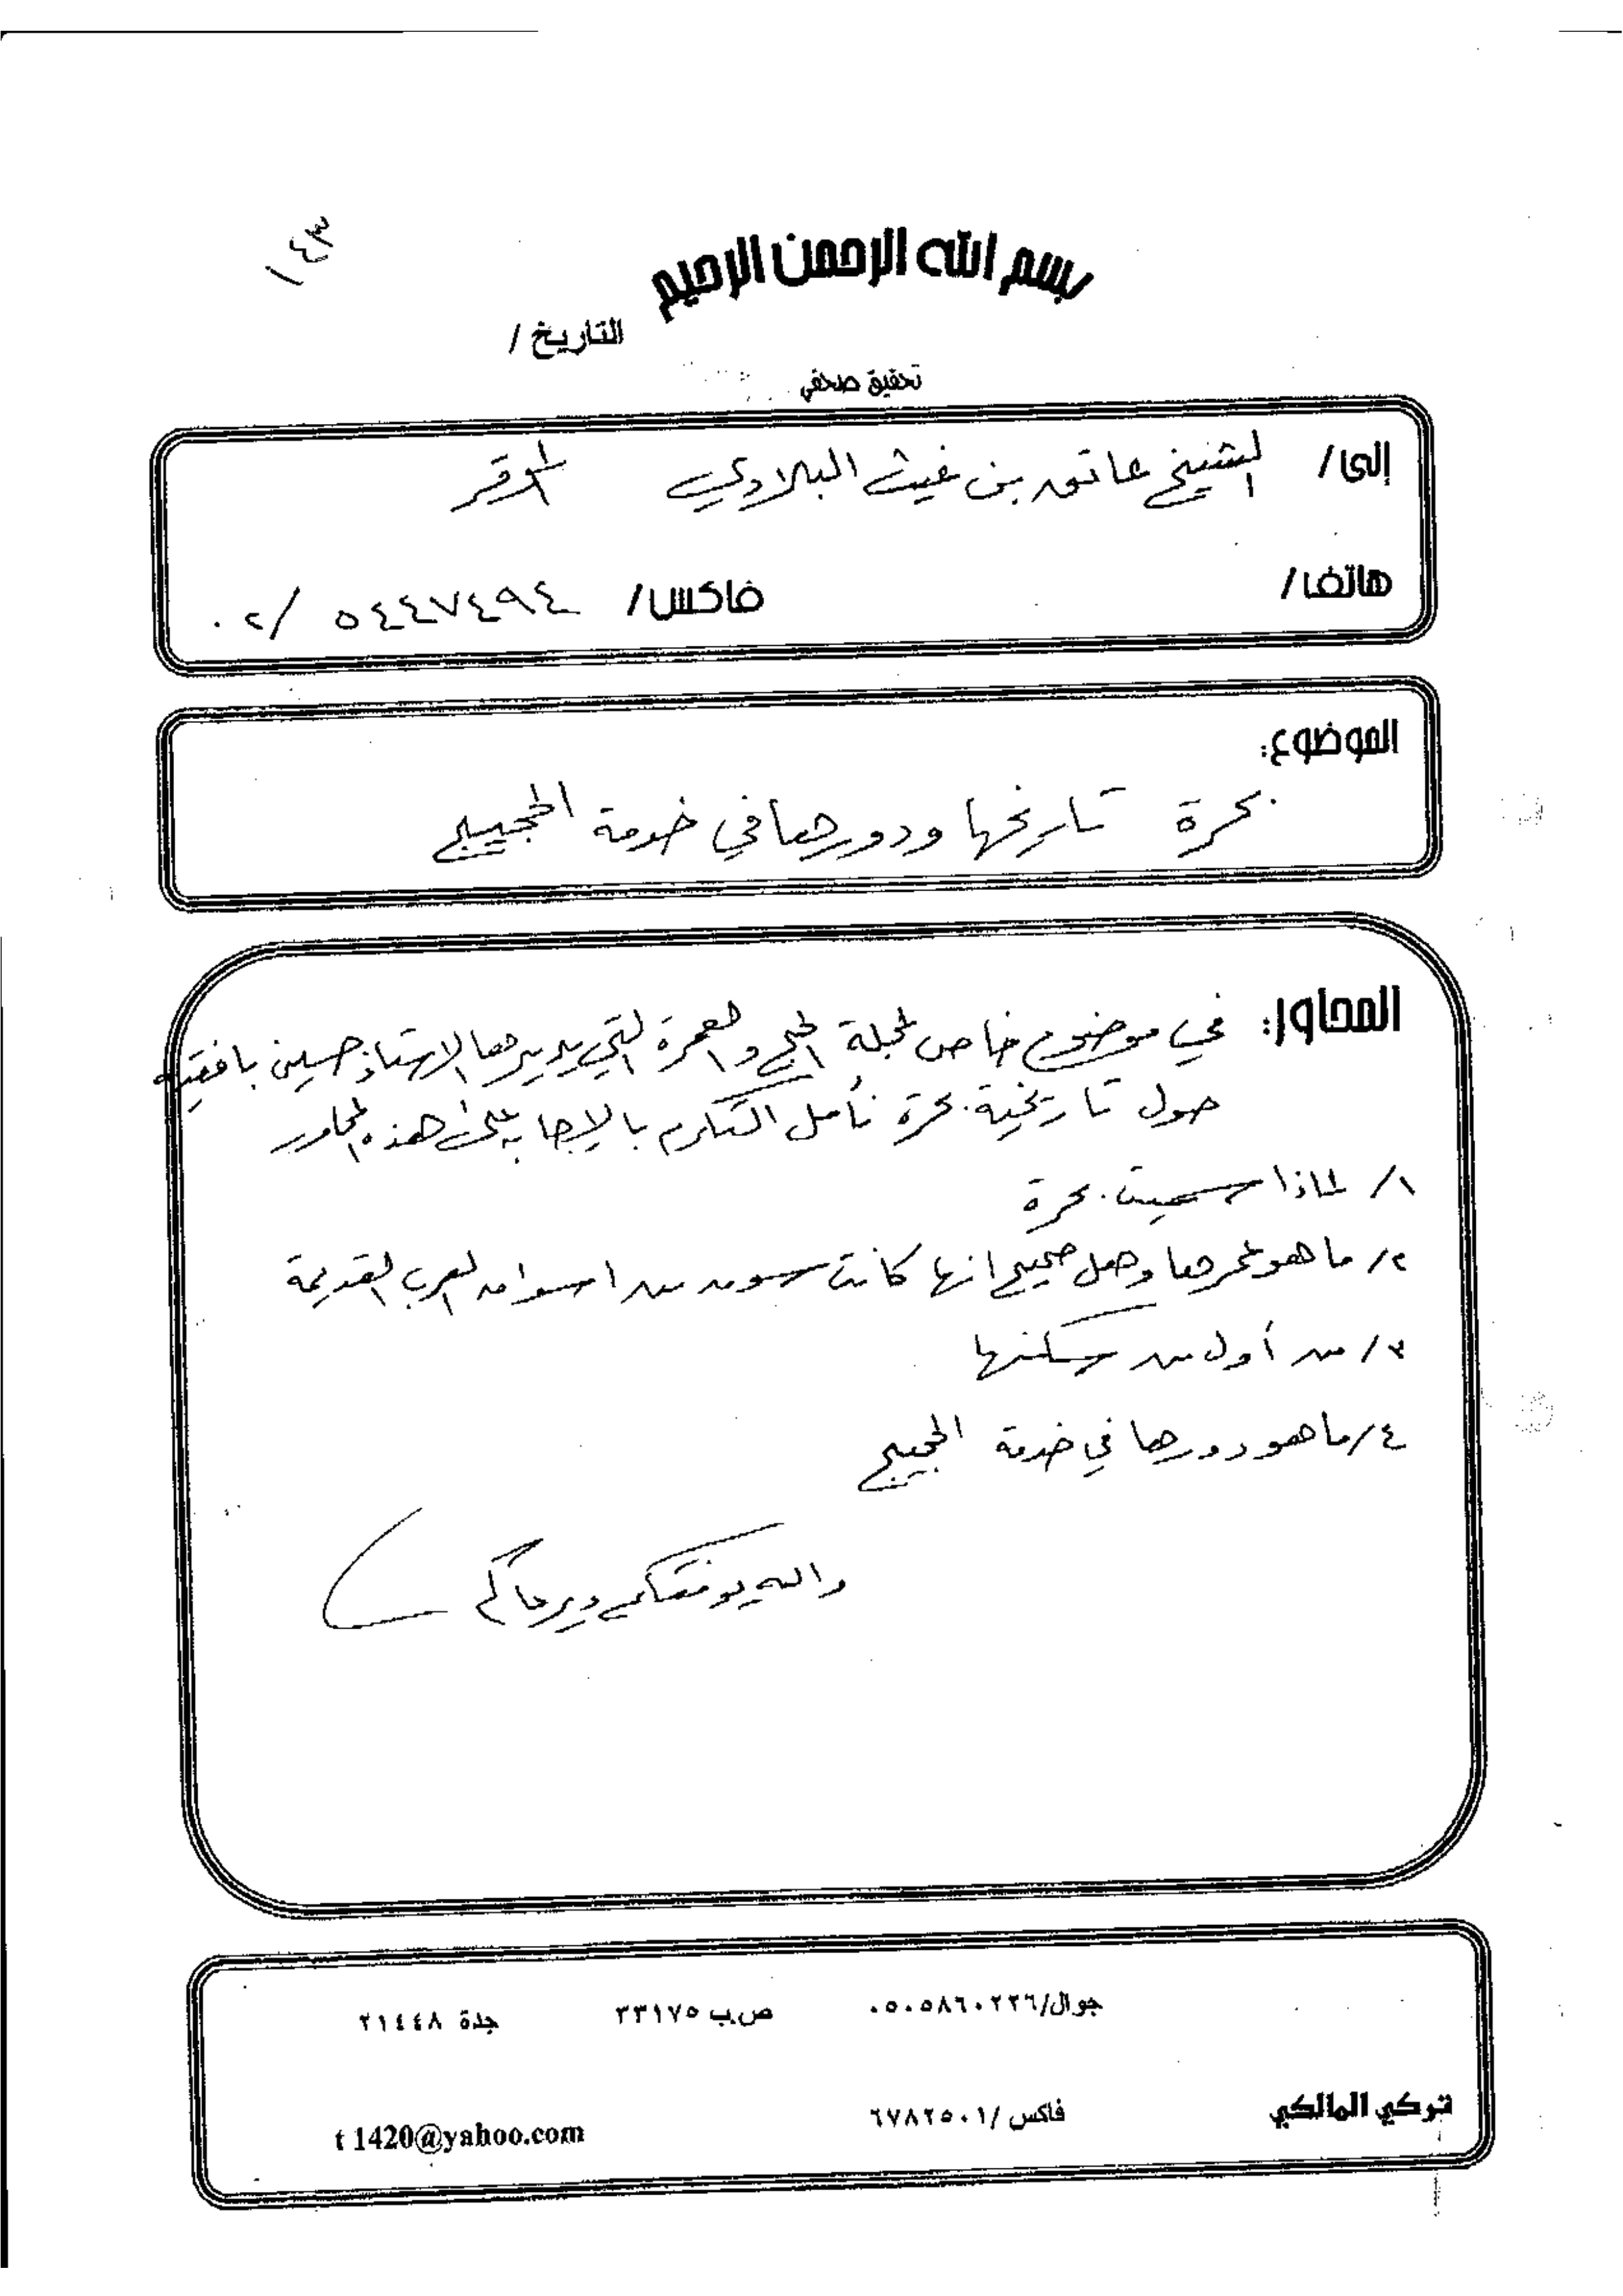 ١٤٣
بسم الله الرحمن الرحيم
التاريخ /
تحقيق صحفي
إلى / الشيخ عاتق بن غيث البلادي الموقر
هاتف / فاكس / ٥٤٤٧٤٩٤ /٠٢
الموضوع:
بحرة تاريخها ودورها في خدمة الحجيج
المحاور: في موضوع خاص لمجلة الحج والعمرة التي يديرها الاستاذ حسين بافقيه
حول تاريخية بحرة نأمل التكرم بالإجابة على هذه المحاور
١/ لماذا سميت بحرة
٢/ ما هو عمرها وهل صحيح انها كانت سوق من اسواق العرب القديمة
٣/ من أول من سكنها
٤/ ما هو دورها في خدمة الحجيج
والله يوفقكم ويرعاكم
جوال/٠٥٠٥٨٦٠٢٢٦ ص.ب ٣٣١٧٥ جدة ٢١٤٤٨
تركي المالكي فاكس /٦٧٨٢٥٠١ t 1420@yahoo.com